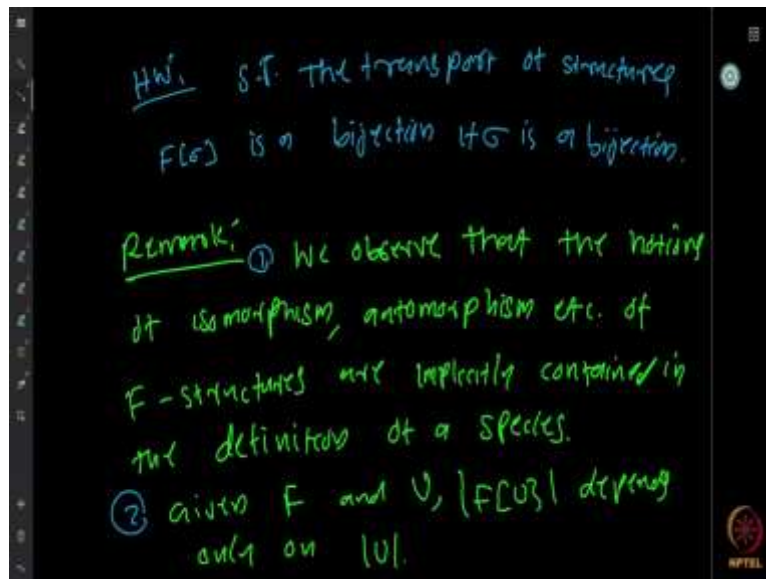 HW: S.T. the transport of structures
F[σ] is a bijection if σ is a bijection.
Remark: ① We observe that the notions
of isomorphism, automorphism etc. of
F-structures are implicitly contained in
the definition of a species.
② Given F and U, |F[U]| depends
only on |U|.
NPTEL